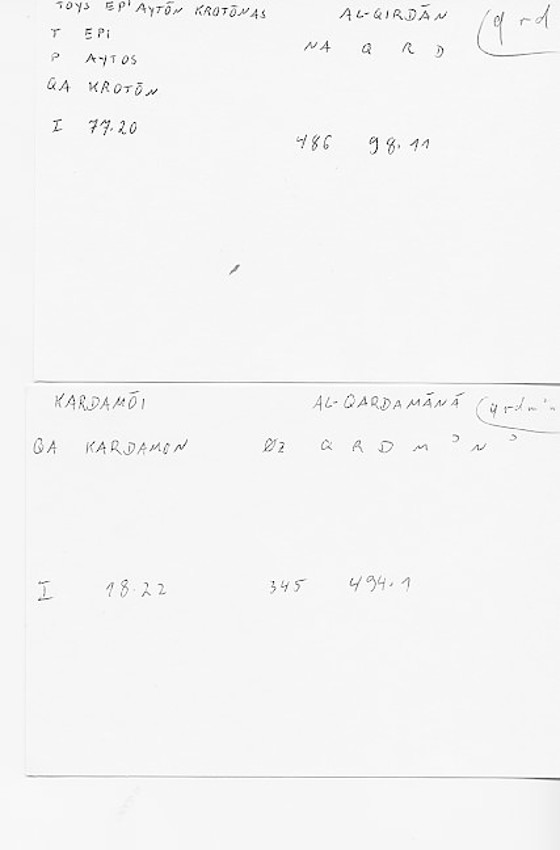 TOYS EPI AYTŌN KROTŌNAS AL-QIRDĀN (qrd
T EPI NA Q R D
P AYTOS
QA KROTŌN
I 77.20 486 98.11
KARDAMŌI AL-QARDAMĀNĀ (qrdm'n
QA KARDAMON ØZ Q R D M ʾ N ʾ
I 18.22 345 494.1